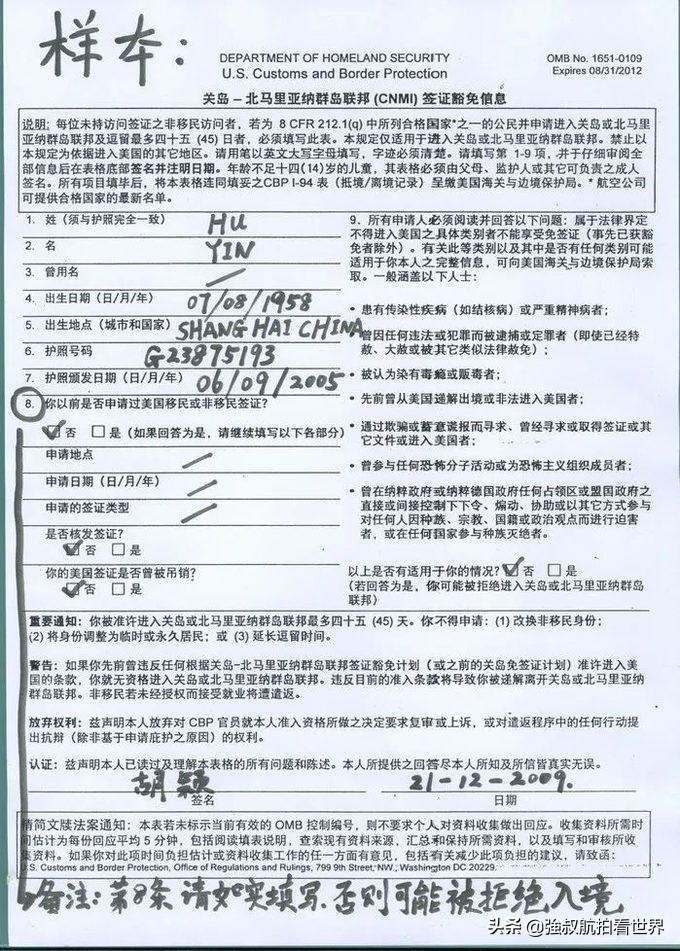 样本:
DEPARTMENT OF HOMELAND SECURITY
U.S. Customs and Border Protection
OMB No. 1651-0109
Expires 08/31/2012
关岛 – 北马里亚纳群岛联邦 (CNMI) 签证豁免信息
说明: 每位未持访问签证之非移民访问者，若为 8 CFR 212.1(q) 中所列合格国家*之一的公民并申请进入关岛或北马里
亚纳群岛联邦及逗留最多四十五 (45) 日者，必须填写此表。本规定仅适用于进入关岛或北马里亚纳群岛联邦。禁止以
本规定为依据进入美国的其它地区。请用笔以英文大写字母填写，字迹必须清楚。请填写第 1-9 项，并于仔细审阅全
部信息后在表格底部签名并注明日期。年龄不足十四(14)岁的儿童，其表格必须由父母、监护人或其它可负责之成人
签名。所有项目填毕后，将本表格连同填妥之CBP I-94 表（抵境/离境记录）呈缴美国海关与边境保护局。* 航空公司
可提供合格国家的最新名单。
1. 姓（须与护照完全一致） HU
2. 名 YIN
3. 曾用名
4. 出生日期（日/月/年） 07/08/1958
5. 出生地点（城市和国家） SHANG HAI CHINA
6. 护照号码 G23875193
7. 护照颁发日期（日/月/年） 06/09/2005
8. 你以前是否申请过美国移民或非移民签证?
否 是（如果回答为是，请继续填写以下各部分）
申请地点
申请日期（日/月/年）
申请的签证类型
是否核发签证?
否 是
你的美国签证是否曾被吊销?
否 是
9. 所有申请人必须阅读并回答以下问题: 属于法律界定
不得进入美国之具体类别者不能享受免签证（事先已获豁
免者除外）。有关此等类别以及其中是否有任何类别可能
适用于你本人之完整信息，可向美国海关与边境保护局索
取。一般涵盖以下人士:
• 患有传染性疾病（如结核病）或严重精神病者;
• 曾因任何违法或犯罪而被逮捕或定罪者（即使已经特
赦、大赦或被其它类似法律赦免）;
• 被认为染有毒瘾或贩毒者;
• 先前曾从美国递解出境或非法进入美国者;
• 通过欺骗或蓄意谎报而寻求、曾经寻求或取得签证或其
它文件或进入美国者;
• 曾参与任何恐怖分子活动或为恐怖主义组织成员者;
• 曾在纳粹政府或纳粹德国政府任何占领区或盟国政府之
直接或间接控制下下令、煽动、协助或以其它方式参与
对任何人因种族、宗教、国籍或政治观点而进行迫害
者，或在任何国家参与种族灭绝者。
以上是否有适用于你的情况? 否 是
(若回答为是，你可能被拒绝进入关岛或北马里亚纳群岛
联邦)
重要通知: 你被准许进入关岛或北马里亚纳群岛联邦最多四十五 (45) 天。你不得申请: (1) 改换非移民身份;
(2) 将身份调整为临时或永久居民; 或 (3) 延长逗留时间。
警告: 如果你先前曾违反任何根据关岛–北马里亚纳群岛联邦签证豁免计划（或之前的关岛免签证计划）准许进入美
国的条款，你就无资格进入关岛或北马里亚纳群岛联邦。违反目前的准入条款将导致你被递解离开关岛或北马里亚纳
群岛联邦。非移民若未经授权而接受就业将遭遣返。
放弃权利: 兹声明本人放弃对 CBP 官员就本人准入资格所做之决定要求复审或上诉，或对遣返程序中的任何行动提
出抗辩（除非基于申请庇护之原因）的权利。
认证: 兹声明本人已读过及理解本表格的所有问题和陈述。本人所提供之回答尽本人所知及所信皆真实无误。
胡颖 21-12-2009.
签名 日期
精简文牍法案通知: 本表若未标示当前有效的 OMB 控制编号，则不要求个人对资料收集做出回应。收集资料所需时
间估计为每份回应平均 5 分钟，包括阅读填表说明，查索现有资料来源，汇总和保持所需资料，以及填写和审核所收
集资料。如果你对此项时间负担估计或资料收集工作的任一方面有意见，包括有关减少此项负担的建议，请致函:
U.S. Customs and Border Protection, Office of Regulations and Rulings, 799 9th Street, NW., Washington DC 20229.
备注: 第8条 请如实填写,否则可能被拒绝入境
头条 @強叔航拍看世界